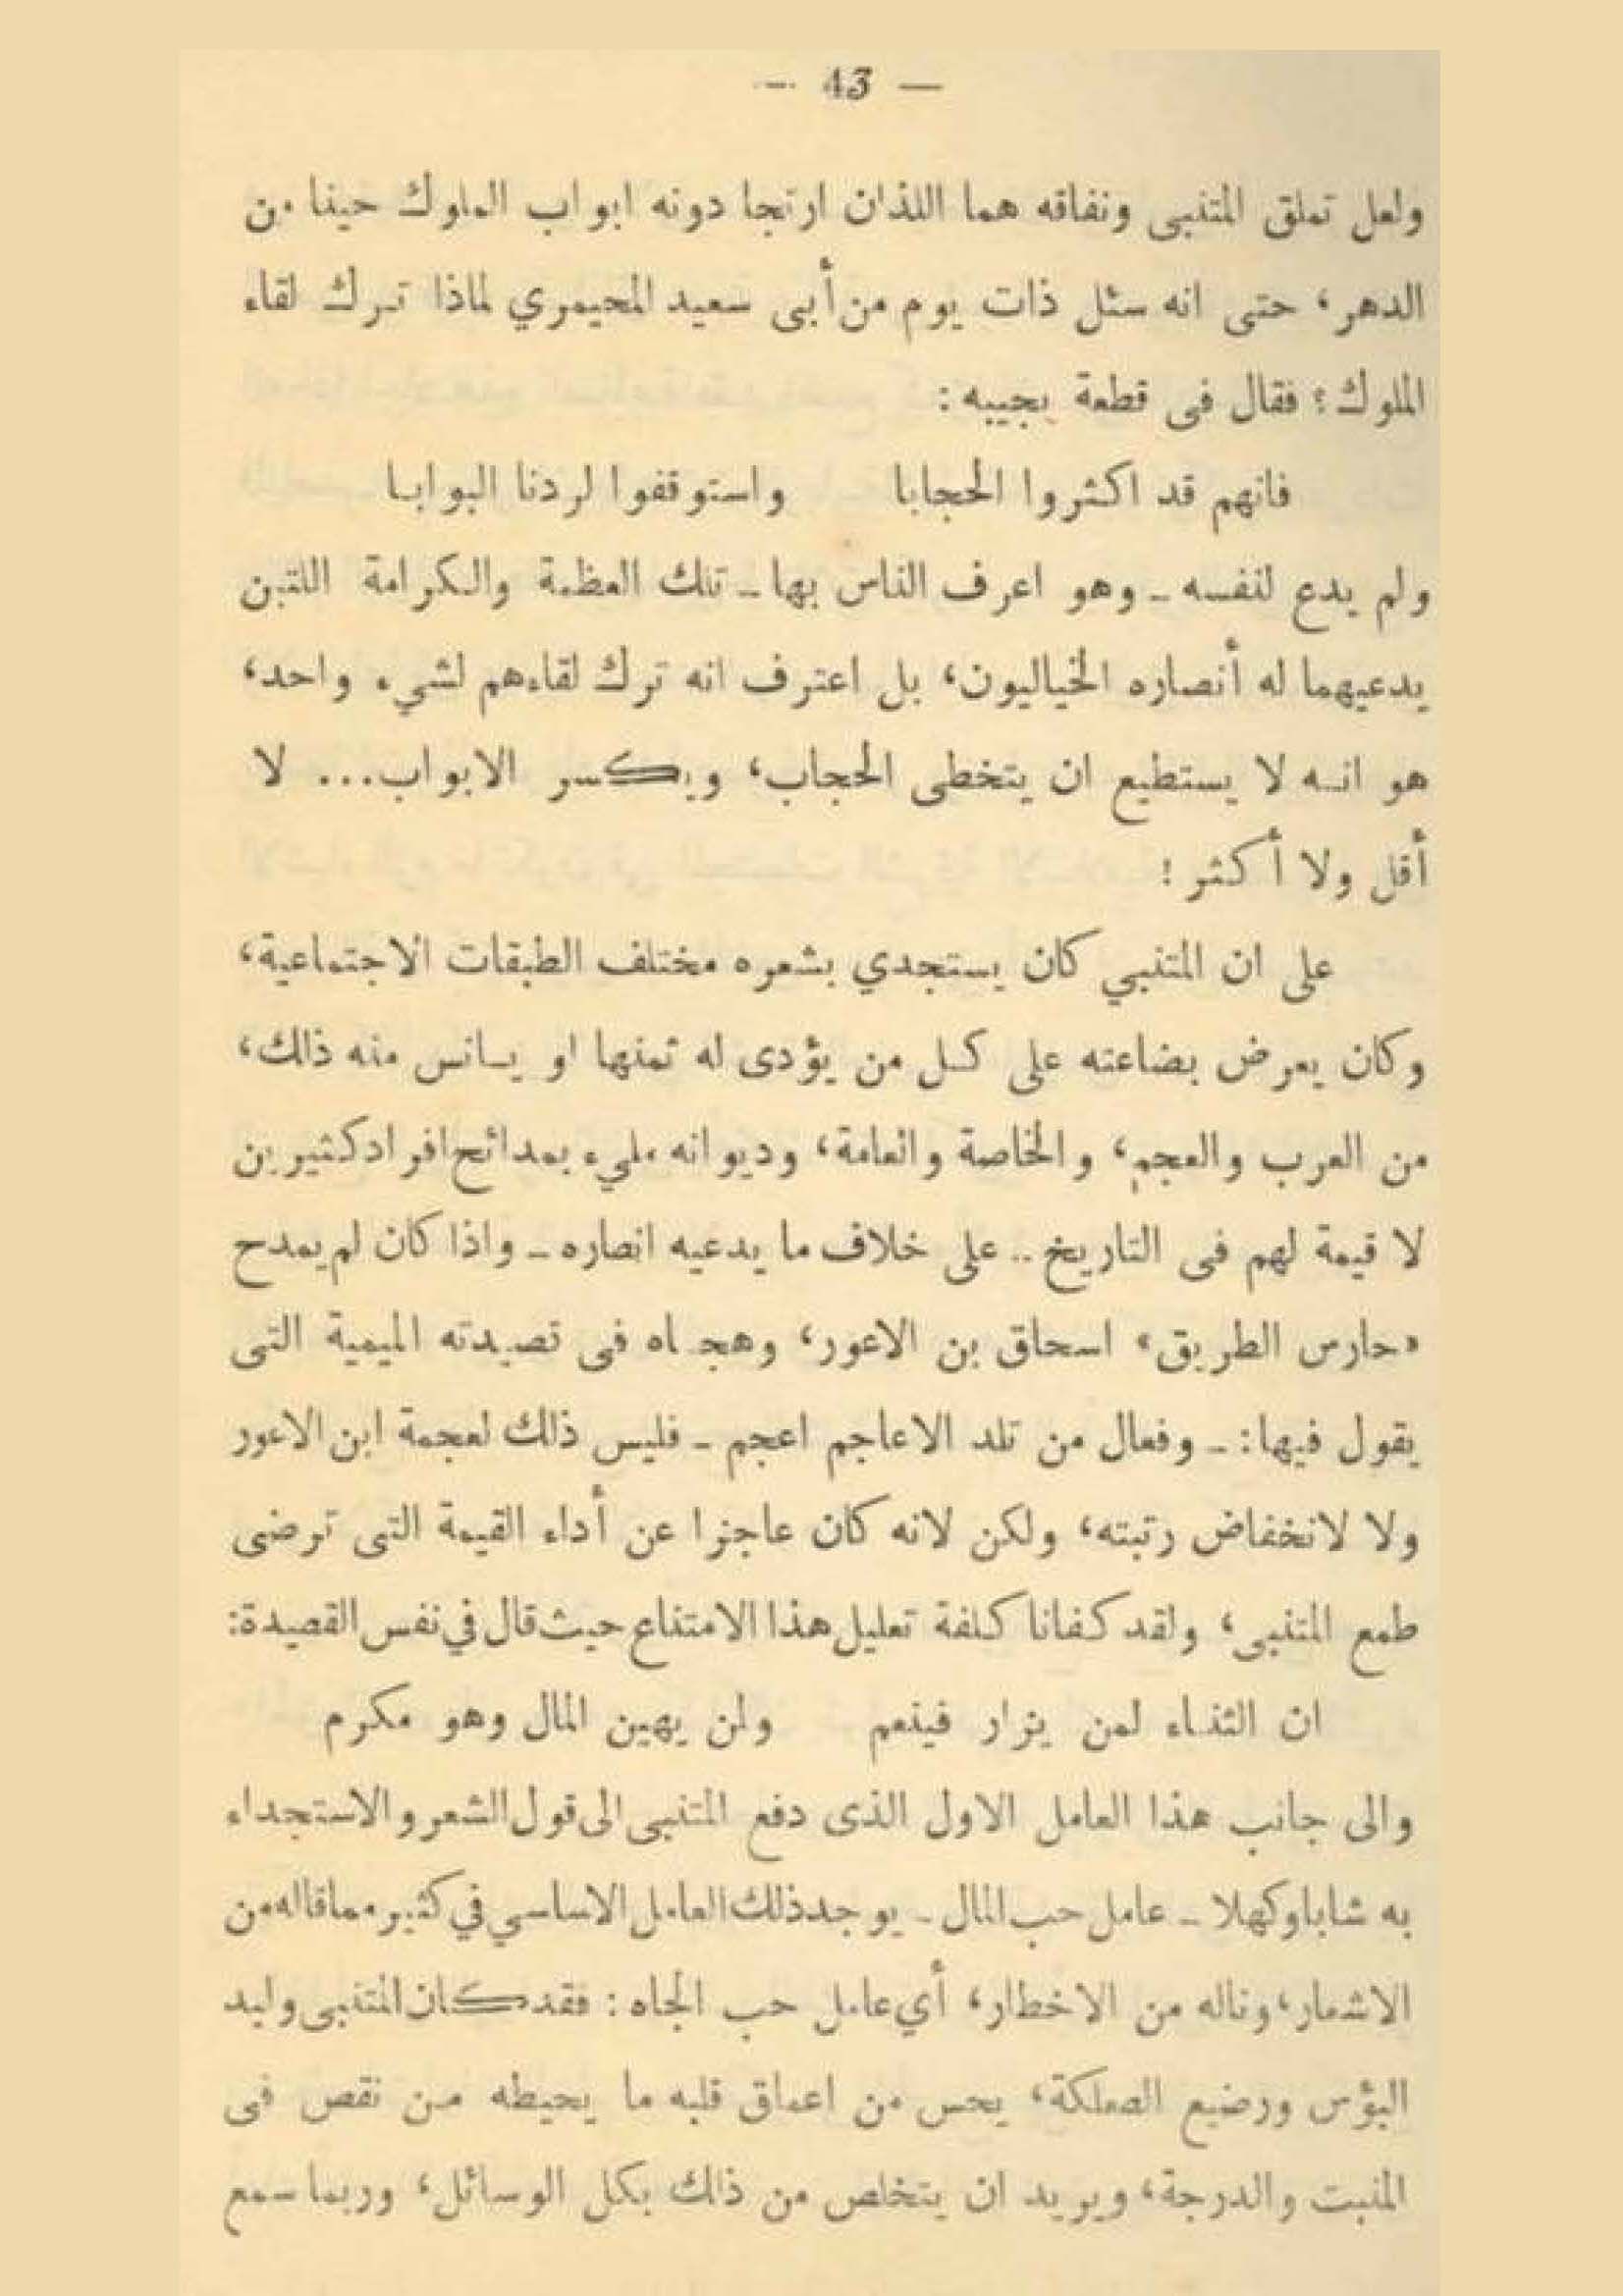 — 43 —
ولعل تملق المتنبى ونفاقه هما اللذان ارتجا دونه ابواب الملوك حينا من
الدهر، حتى انه سئل ذات يوم من أبى سعيد المحيمري لماذا ترك لقاء
الملوك؟ فقال فى قطعة يجيبه:
فانهم قد اكثروا الحجابا واستوقفوا لردنا البوابا
ولم يدع لنفسه - وهو اعرف الناس بها - تلك العظمة والكرامة اللتين
يدعيهما له أنصاره الخياليون، بل اعترف انه ترك لقاءهم لشيء واحد،
هو انه لا يستطيع ان يتخطى الحجاب، ويكسر الابواب... لا
أقل ولا أكثر!
على ان المتنبي كان يستجدي بشعره مختلف الطبقات الاجتماعية،
وكان يعرض بضاعته على كل من يؤدى له ثمنها او يانس منه ذالك،
من العرب والعجم، والخاصة والعامة، وديوانه مليء بمدائح افراد كثيرين
لا قيمة لهم فى التاريخ .. على خلاف ما يدعيه انصاره - واذا كان لم يمدح
«حارس الطريق» اسحاق بن الاعور، وهجاه فى قصيدته الميمية التى
يقول فيها: - وفعال من تلد الاعاجم اعجم - فليس ذلك لعجمة ابن الاعور
ولا لانخفاض رتبته، ولكن لانه كان عاجزا عن أداء القيمة التى ترضى
طمع المتنبى، ولقد كفانا كلفة تعليل هذا الامتناع حيث قال في نفس القصيدة:
ان الثناء لمن يزار فينعم ولن يهين المال وهو مكرم
والى جانب هذا العامل الاول الذى دفع المتنبى الى قول الشعر والاستجداء
به شابا وكهلا - عامل حب المال - يوجد ذلك العامل الاساسي في كثير مما قاله من
الاشعار، وناله من الاخطار، أي عامل حب الجاه: فقد كان المتنبى وليد
البؤس ورضيع الصعلكة، يحس من اعماق قلبه ما يحيطه من نقص فى
المنبت والدرجة، ويريد ان يتخلص من ذالك بكل الوسائل، وربما سمع